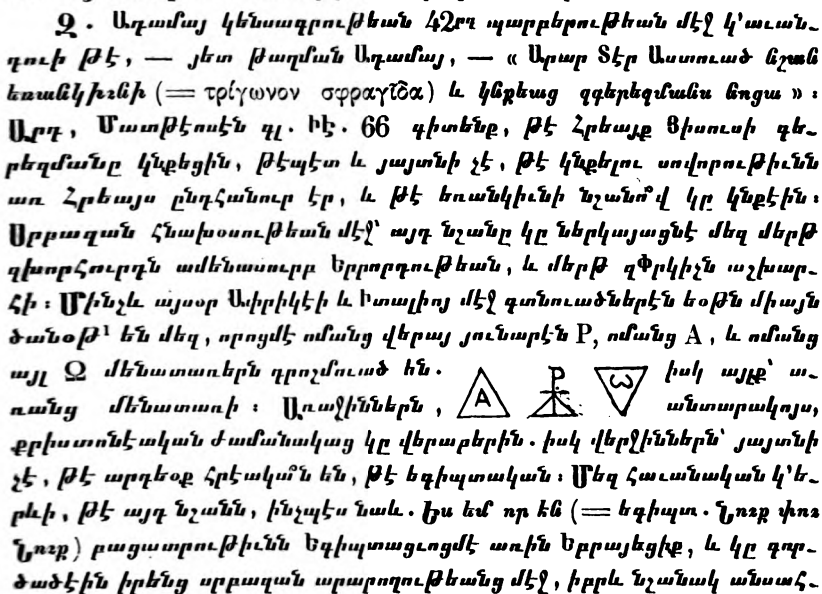 Ձ. Ադամայ կենսագրութեան 42րդ պարբերութեան մէջ կ՚աւան-
դուի թէ, — յետ թաղման Ադամայ, — « Արար Տէր Աստուած նշան
եռանկիւնի (= τρίγωνον σφραγῖδα) և կնքեաց զգերեզմանս նոցա » :
Արդ, Մատթէոսէն գլ. ԻԷ. 66 գիտենք, թէ Հրեայք Յիսուսի գե-
րեզմանը կնքեցին, թէպէտ և յայտնի չէ, թէ կնքելու սովորութիւնն
առ Հրեայս ընդհանուր էր, և թէ եռանկիւնի նշանո՞վ կը կնքէին :
Սրբազան հնախօսութեան մէջ՝ այդ նշանը կը ներկայացնէ մեզ մերթ
զխորհուրդն ամենասուրբ Երրորդութեան, և մերթ զՓրկիչն աշխար-
հի : Մինչև այսօր Ափրիկէի և Իտալիոյ մէջ գտնուածներէն եօթն միայն
ծանօթ¹ են մեզ, որոցմէ ոմանց վերայ յունարէն P, ոմանց A, և ոմանց
այլ Ω մենատառերն դրոշմուած են. իսկ այլք՝ ա-
ռանց մենատառի : Առաջիններն, A P ω անտարակոյս,
քրիստոնէական ժամանակաց կը վերաբերին. իսկ վերջիններն՝ յայտնի
չէ, թէ արդեօք հրէակա՞ն են, թէ եգիպտական : Մեզ հաւանական կ՚ե-
րևի, թէ այդ նշանն, ինչպէս նաև. Ես եմ որ էն (= եգիպտ. Նուք փու
Նուք) բացատրութիւնն Եգիպտացւոցմէ առին Եբրայեցիք, և կը գոր-
ծածէին իրենց սրբազան արարողութեանց մէջ, իբրև նշանակ անսահ-